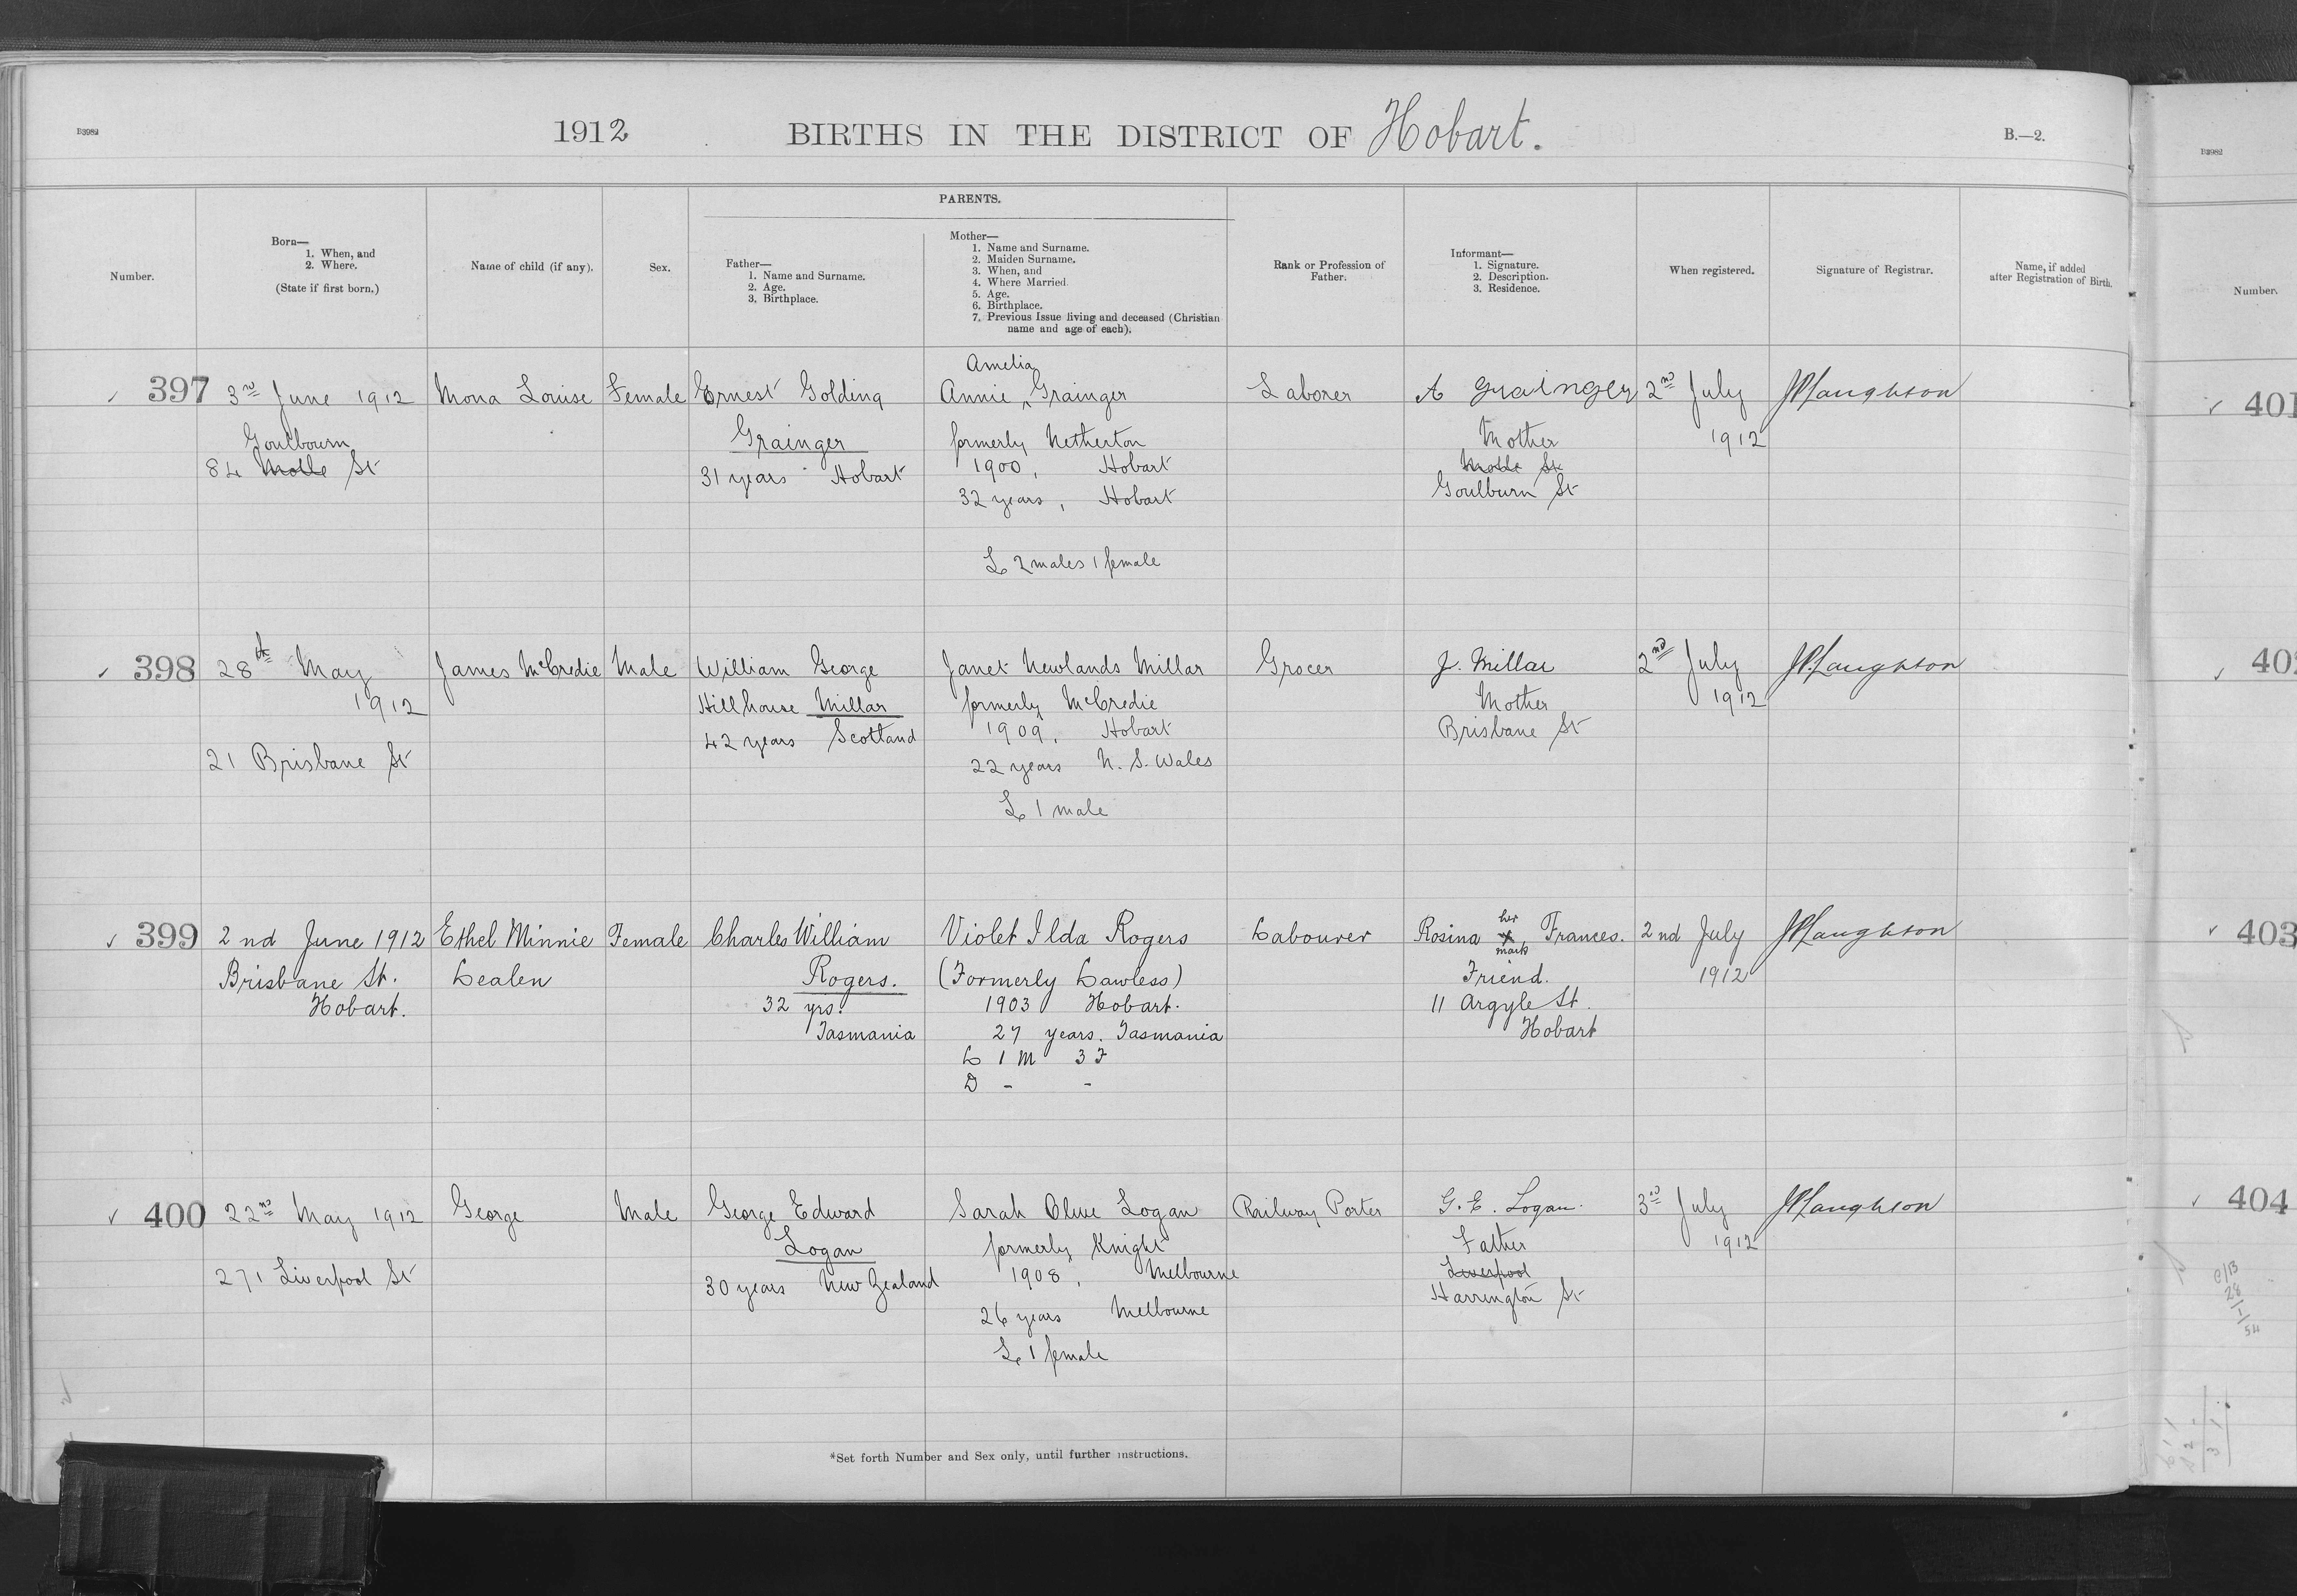 B3982
1912 BIRTHS IN THE DISTRICT OF Hobart.
B.—2.
B3982
PARENTS.
Number.
Born—
1. When, and
2. Where.
(State if first born.)
Name of child (if any).
Sex.
Father—
1. Name and Surname.
2. Age.
3. Birthplace.
Mother—
1. Name and Surname.
2. Maiden Surname.
3. When, and
4. Where Married.
5. Age.
6. Birthplace.
7. Previous Issue living and deceased (Christian
name and age of each).
Rank or Profession of
Father.
Informant—
1. Signature.
2. Description.
3. Residence.
When registered.
Signature of Registrar.
Name, if added
after Registration of Birth.
Number.
397
3rd June 1912
Goulbourn
84 Molle St
Mona Louise
Female
Ernest Golding
Grainger
31 years Hobart
Amelia
Annie ^ Grainger
formerly Netherton
1900, Hobart
32 years, Hobart
L 2 males 1 female
Laborer
A Grainger
Mother
Molle St
Goulburn St
2nd July
1912
JPLaughton
401
398
28th May
1912
21 Brisbane St
James McCredie
Male
William George
Hillhouse Millar
42 years Scotland
Janet Newlands Millar
formerly McCredie
1909, Hobart
22 years N. S. Wales
L 1 male
Grocer
J. Millar
Mother
Brisbane St
2nd July
1912
JPLaughton
402
399
2nd June 1912
Brisbane St.
Hobart.
Ethel Minnie
Lealen
Female
Charles William
Rogers.
32 yrs.
Tasmania
Violet Ilda Rogers
(Formerly Lawless)
1903 Hobart.
27 years. Tasmania
L 1 M 3 F
D - -
Labourer
her
Rosina X, Frances.
mark
Friend.
11 Argyle St.
Hobart
2nd July
1912
JPLaughton
403
400
22nd May 1912
271 Liverpool St
George
Male
George Edward
Logan
30 years New Zealand
Sarah Olive Logan
formerly Knight
1908, Melbourne
26 years Melbourne
L 1 female
Railway Porter
G. E. Logan.
Father
Liverpool
Harrington St
3rd July
1912
JPLaughton
404
*Set forth Number and Sex only, until further instructions.